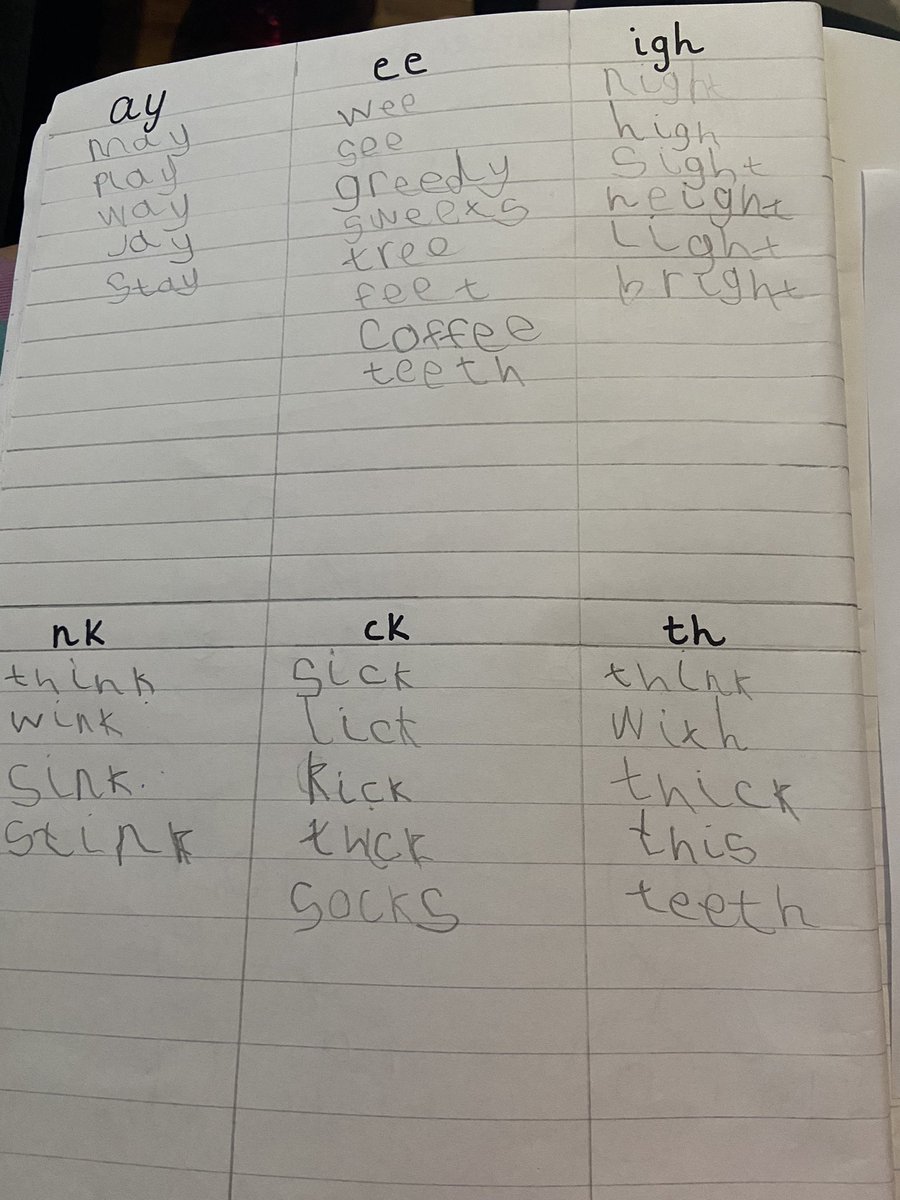 ay
may
play
way
Jay
Stay
ee
wee
see
greedy
sweexs
tree
feet
Coffee
teeth
igh
night
high
Sight
height
Light
bright
nk
think
wink
Sink.
Stink
ck
Sick
lick
Kick
Socks
th
think
Wixh
thick
this
teeth